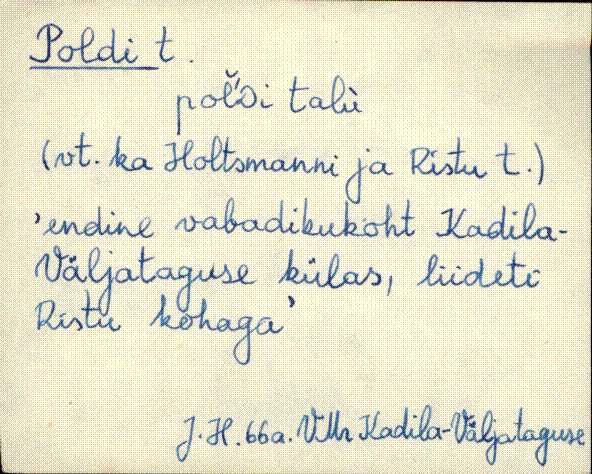 Poldi t.
talu
(vt. ka Holtsmanni ja Ristu t.)
'endine vabadikukoht Kadila-
Väljataguse külas, liideti
Ristu kohaga'
J.H. 66a. VMr Kadila-Väljataguse